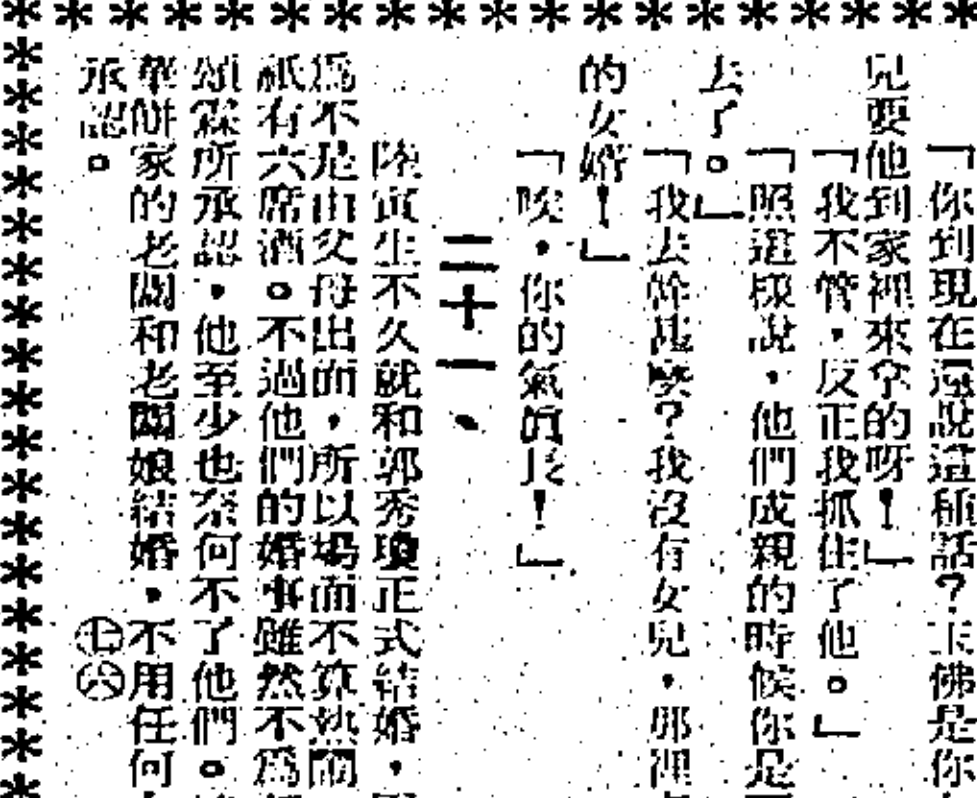 「你到現在還說這種話?玉佛是你
兒要他到家裡來拿的呀!」
「我不管,反正我抓住了他。」
「照這樣說,他們成親的時候你是
去了。」
「我去幹甚麼?我沒有女兒,那裡
的女婿!」
「唉,你的氣眞長!」
二十一、
陸寅生不久就和郭秀瓊正式結婚,
爲不是由父母出面,所以場面不算熱鬧
祇有六席酒。不過他們的婚事雖然不爲
頌霖所承認,他至少也奈何不了他們。
華併家的老闆和老闆娘結婚,不用任何
承認。
㊆㊅